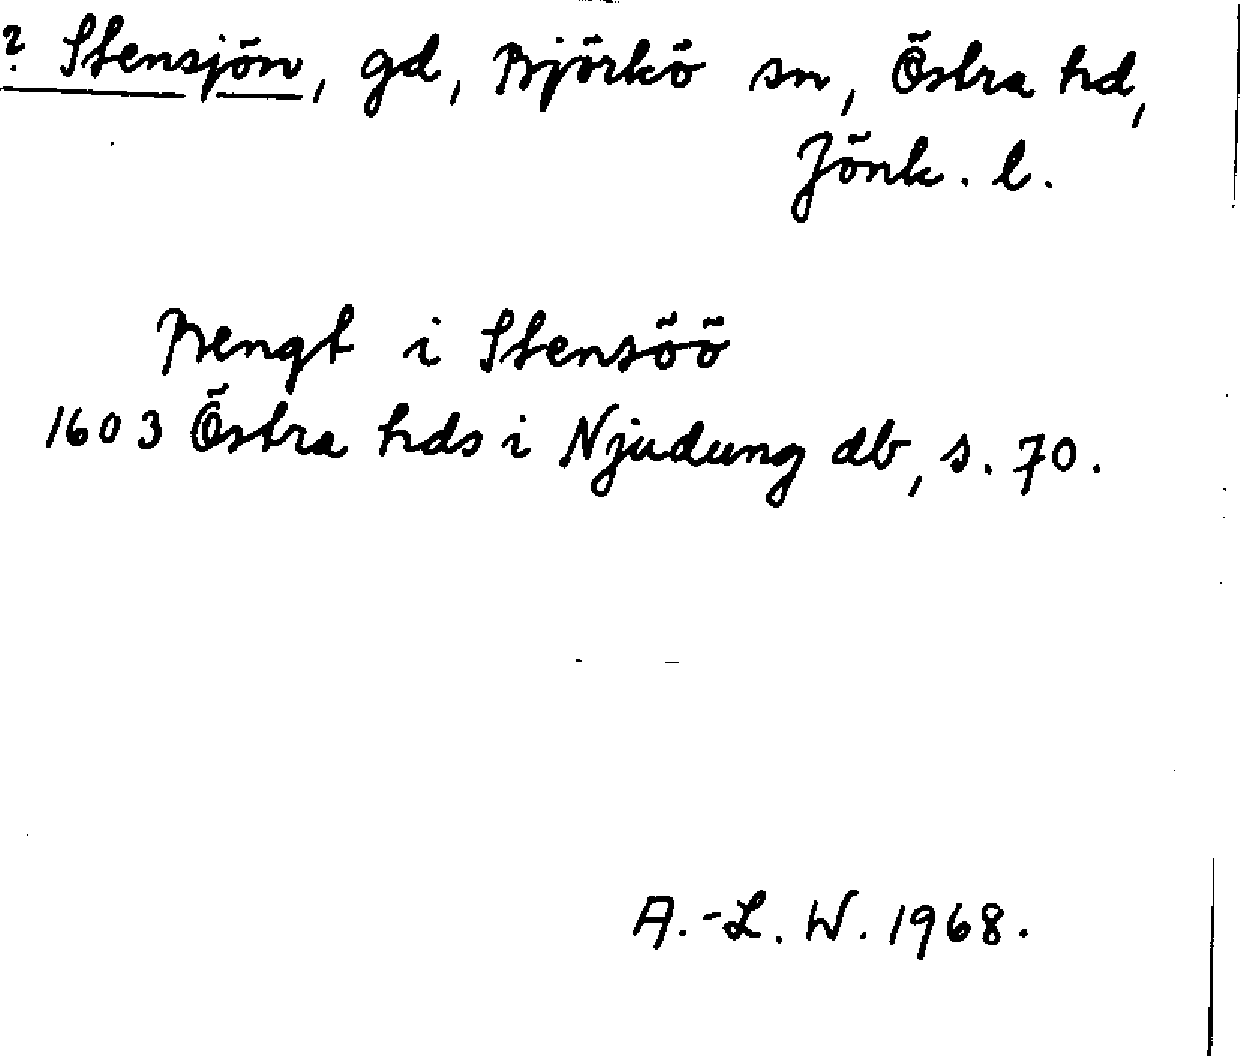 ? Stensjön, gd, Björkö sn, Östra hd,
Jönk. l.
Bengt i Stensöö
1603 Östra hds i Njudung db, s. 70.
A.-L. W. 1968.